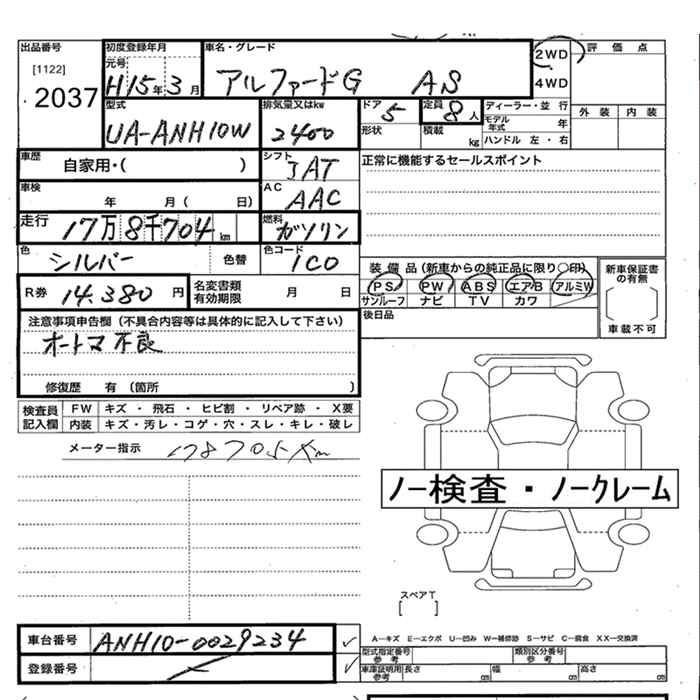 出品番号 初度登録年月 車名・グレード 2WD 評価点
[1122] 元号 H15年3月 アルファードG AS 4WD
2037 型式 排気量又はkw ドア 定員 ディーラー・並行 外装 内装
UA-ANH10W 2400 5 8人 モデル年式 年
形状 積載 kg ハンドル 左・右
車歴 自家用・( ) シフト AT 正常に機能するセールスポイント
車検 年 月( 日) AC AAC
走行 17万8千704km 燃料 ガソリン
色 シルバー 色替 色コード 1C0 装備品(新車からの純正品に限り○印) 新車保証書の有無
R券 14.380円 名変書類有効期限 月 日 PS PW ABS エアB アルミW
サンルーフ ナビ TV カワ 車載不可
注意事項申告欄(不具合内容等は具体的に記入して下さい) 後日品
オートマ不良
修復歴 有(箇所 )
検査員記入欄 FW キズ・飛石・ヒビ割・リペア跡・X要
内装 キズ・汚レ・コゲ・穴・スレ・キレ・破レ
メーター指示 178705Km
ノー検査・ノークレーム
スペアT
[ ]
車台番号 ANH10-0029234 A―キズ E―エクボ U―凹み W―補修跡 S―サビ C―腐食 XX―交換済
型式指定番号 参考 類別区分番号 参考
登録番号 車庫証明用参考 長さ cm 幅 cm 高さ cm